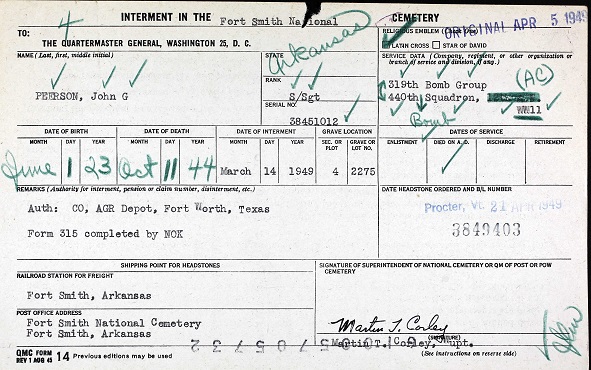 INTERMENT IN THE Fort Smith National CEMETERY
ORIGINAL APR 5 1949
4
TO:
THE QUARTERMASTER GENERAL, WASHINGTON 25, D. C.
RELIGIOUS EMBLEM
LATIN CROSS STAR OF DAVID
NAME (Last, first, middle initial)
PEERSON, John G
STATE
Arkansas
RANK
S/Sgt
SERIAL NO.
38451012
SERVICE DATA (Company, regiment, or other organization or branch of service and division, if any)
319th Bomb Group (AC)
440th Squadron,
Bomb
WW11
DATE OF BIRTH
MONTH DAY YEAR
June 1 23
DATE OF DEATH
MONTH DAY YEAR
Oct 11 44
DATE OF INTERMENT
MONTH DAY YEAR
March 14 1949
GRAVE LOCATION
SEC. OR PLOT GRAVE OR LOT NO.
4 2275
DATES OF SERVICE
ENLISTMENT DIED ON A.D. DISCHARGE RETIREMENT
REMARKS (Authority for interment, pension or claim number, disinterment, etc.)
Auth: CO, AGR Depot, Fort Worth, Texas
Form 315 completed by NOK
DATE HEADSTONE ORDERED AND B/L NUMBER
Procter, Vt. 21 APR 1949
3849403
SHIPPING POINT FOR HEADSTONES
RAILROAD STATION FOR FREIGHT
Fort Smith, Arkansas
POST OFFICE ADDRESS
Fort Smith National Cemetery
Fort Smith, Arkansas
SIGNATURE OF SUPERINTENDENT OF NATIONAL CEMETERY OR QM OF POST OR POW CEMETERY
Martin T. Corley
(SIGNATURE)
Martin T. Corley, Supt.
(See instructions on reverse side)
QMC FORM
REV 1 AUG 45 14 Previous editions may be used